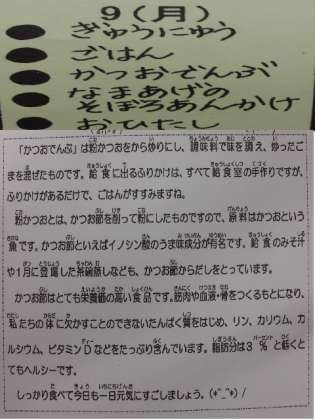 9（月）
ぎゅうにゅう
ごはん
かつおでんぶ
なまあげの
そぼろあんかけ
おひたし
「かつおでんぶ」は粉かつおをから炒りにし、調味料で味を調え、炒ったご
まを混ぜたものです。給食に出るふりかけは、すべて給食室の手作りですが、
ふりかけがあるだけで、ごはんがすすみますね。
粉かつおとは、かつお節を削って粉にしたものですので、原料はかつおという
魚です。かつお節といえばイノシン酸のうま味成分が有名です。給食のみそ汁
や1月に登場した茶碗蒸しなども、かつお節からだしをとっています。
かつお節はとても栄養価の高い食品です。筋肉や血液・骨をつくるもとになり、
私たちの体に欠かすことのできないたんぱく質をはじめ、リン、カリウム、カ
ルシウム、ビタミンDなどをたっぷり含んでいます。脂肪分は3％と低くと
てもヘルシーです。
しっかり食べて今日も一日元気にすごしましょう。(*^_^*)/